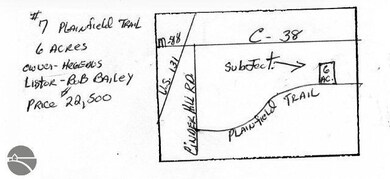 # 7 Plainfield Trail
6 Acres
Owner - Hegedus
Listor - Bob Bailey
Price $22,500
M-88
C-38
U.S. 131
Subject →
6 AC.
Cinder Hill RD.
Plainfield Trail